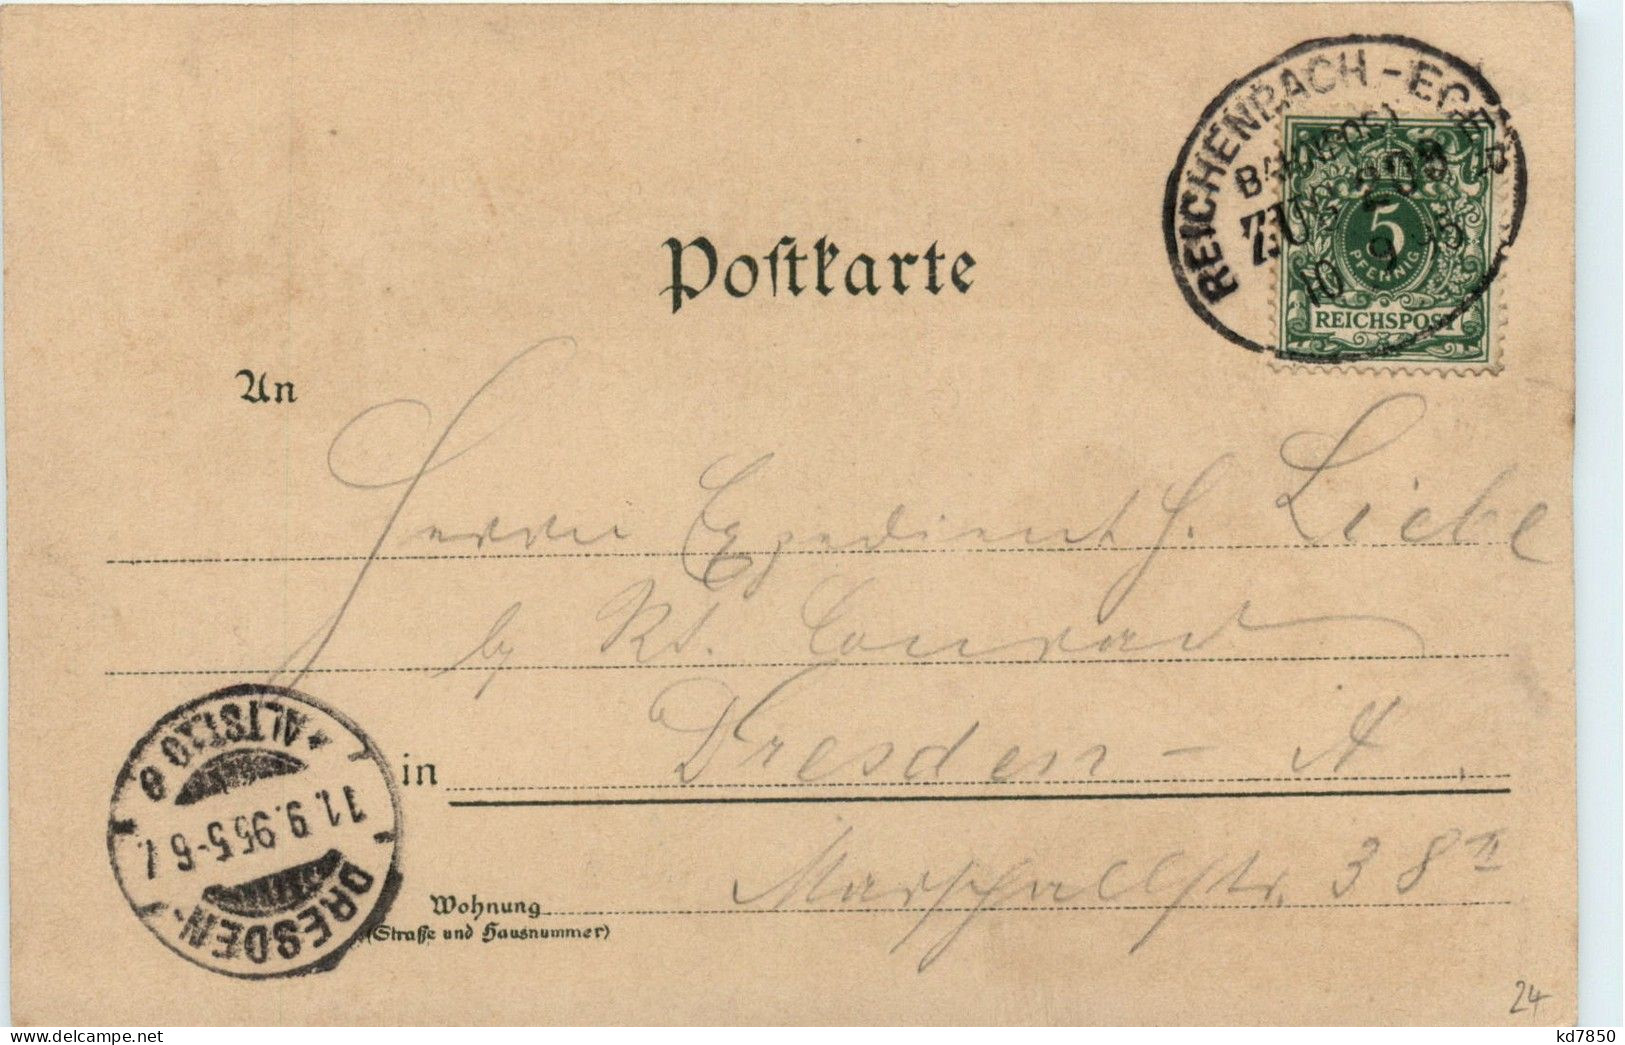 REICHENBACH - EGER
BAHNPOST
ZUG 209
10 9 95
5
PFENNIG
REICHSPOST
Poſtkarte
An
Herrn Expedient H. Liebe
by Rt. Conrad
in Dresden - A.
Marschallstr. 38 II
Wohnung
(Straße und Hausnummer)
DRESDEN-
ALTST.
11.9.95.5-6
24
kd7850